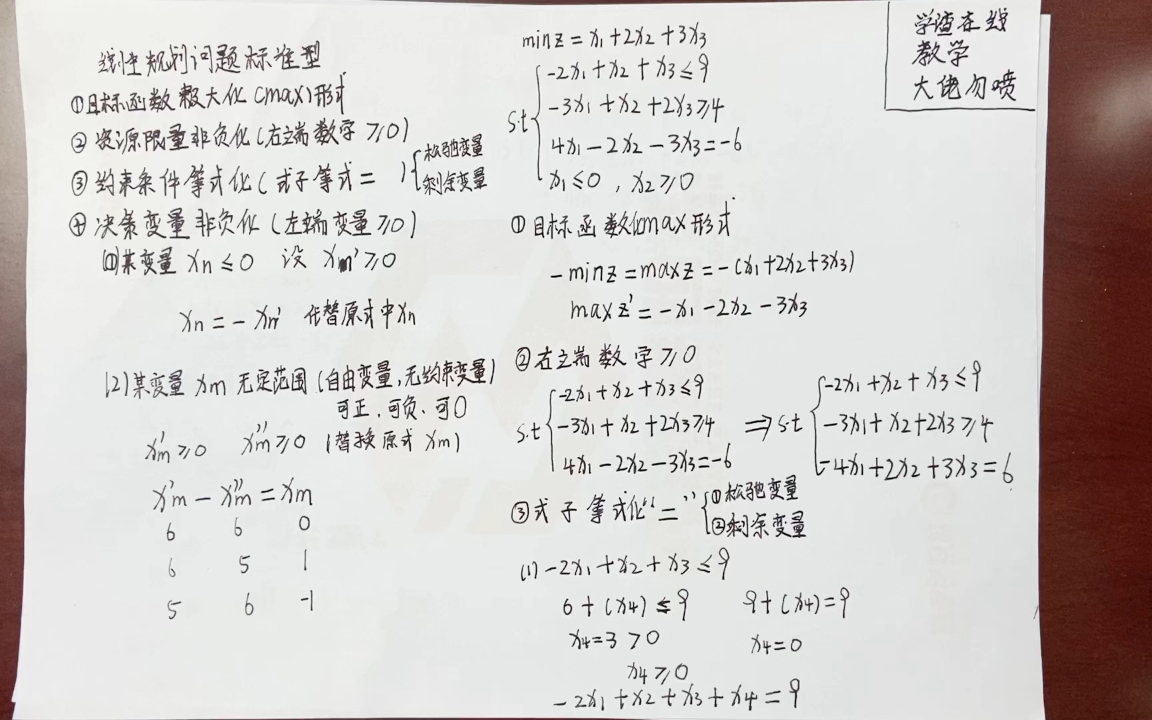 线性规划问题标准型
①目标函数极大化(max)形式
②资源限量非负化(右边端数字≥0)
③约束条件等式化(式子等式= ){松弛变量
剩余变量
④决策变量非负化(左端变量≥0)
(1)某变量 xn≤0 设 xm'≥0
xn=-xn' 代替原式中xn
(2)某变量 xm 无定范围(自由变量,无约束变量)
可正,可负、可0
xm'≥0 xm''≥0 (替换原式 xm)
xm'-xm''=xm
6 6 0
6 5 1
5 6 -1
min z=x1+2x2+3x3
s.t{-2x1+x2+x3≤9
-3x1+x2+2x3≥4
4x1-2x2-3x3=-6
x1≤0,x2≥0
①目标函数化max形式
-min z=max z=-(x1+2x2+3x3)
max z'=-x1-2x2-3x3
②右立端数字≥0
s.t{-2x1+x2+x3≤9
-3x1+x2+2x3≥4
4x1-2x2-3x3=-6
⇒s.t{-2x1+x2+x3≤9
-3x1+x2+2x3≥4
-4x1+2x2+3x3=6
③式子等式化“=”{①松弛变量
②剩余变量
(1)-2x1+x2+x3≤9
6+(x4)≤9 9+(x4)=9
x4=3>0 x4=0
x4≥0
-2x1+x2+x3+x4=9
学渣在线
教学
大佬勿喷